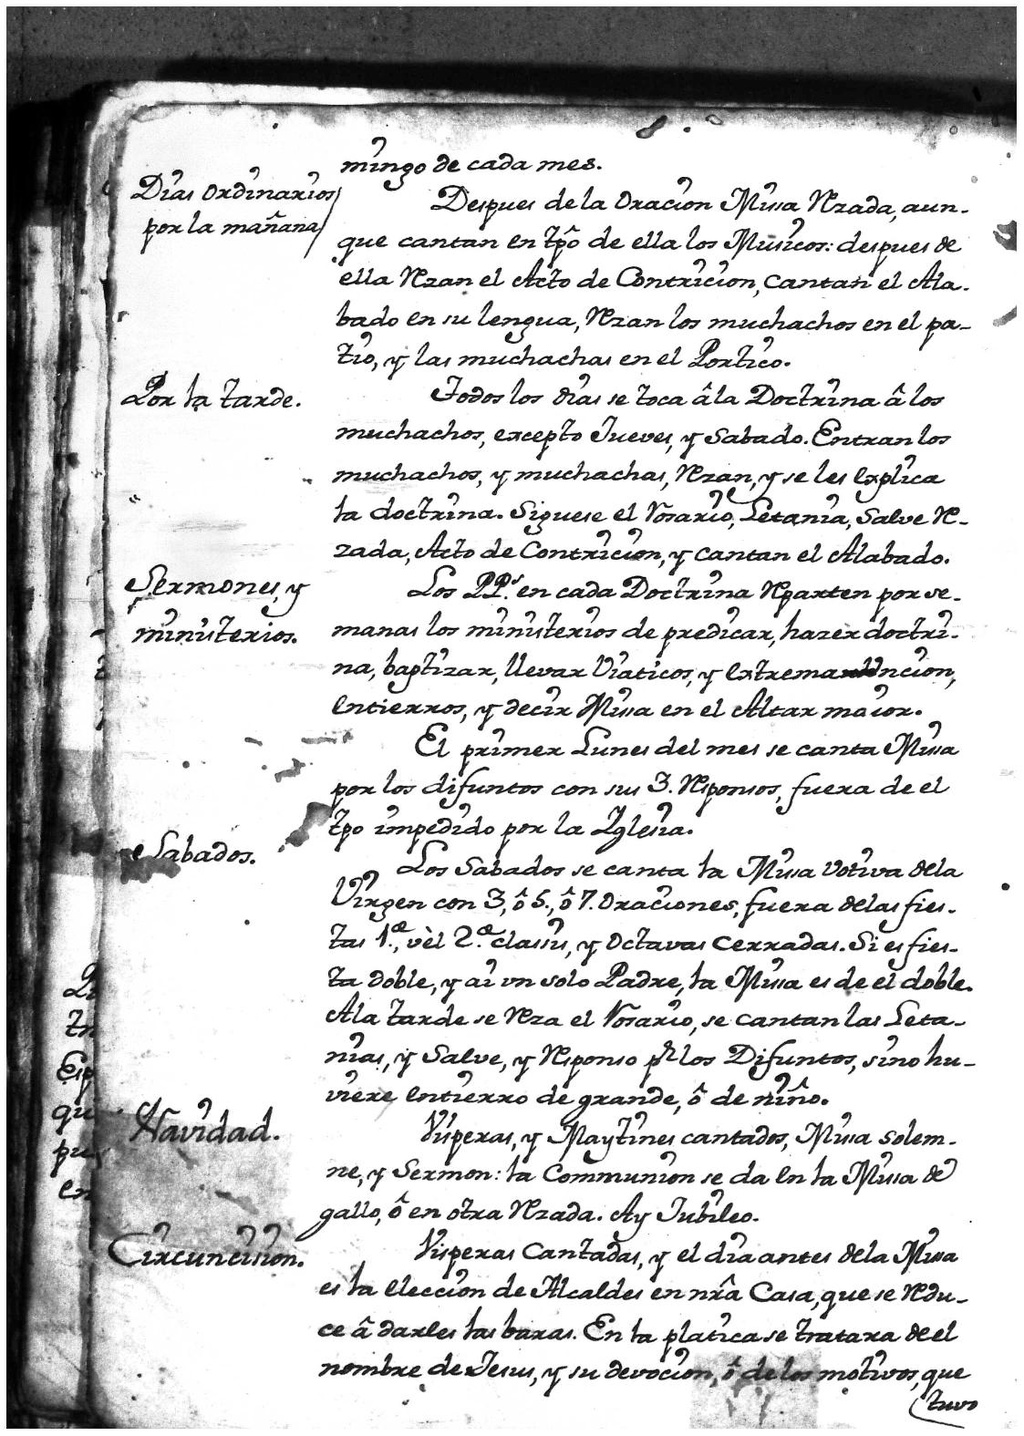 mingo de cada mes.
Dias Ordinarios
por la mañana
Despues de la Oracion Missa Rezada, aun-
que cantan en tpô de ella los Musicos: despues de
ella Rezan el Acto de Contricion, cantan el Ala-
bado en su lengua, Rezan los muchachos en el pa-
tio, y las muchachas en el Portico.
Por la tarde.
Todos los dias se toca â la Doctrina â los
muchachos, excepto Jueves, y Sabado. Entran los
muchachos, y muchachas, Rezan, y se les explica
la doctrina. Siguese el Rosario, Letania, Salve Re-
zada, Acto de Contricion, y cantan el Alabado.
Sermones, y
ministerios.
Los PP.s en cada Doctrina Reparten por se-
manas los ministerios de predicar, hazer doctri-
na, baptizar, llevar Viaticos, y extrema Vncion,
entierros, y decir Missa en el Altar maior.
El primer Lunes del mes se canta Missa
por los difuntos con sus 3. Responsos, fuera de el
tpo impedido por la Iglesia.
Sabados.
Los Sabados se canta la Missa votiva de la
Virgen con 3, ô 5., ô 7. Oraciones, fuera de las fies-
tas 1.ae, vèl 2.ae classis, y Octavas cerradas. Si es fies-
ta doble, y ai vn solo Padre, la Missa es de el doble.
A la tarde se Reza el Rosario, se cantan las Leta-
nias, y Salve, y Responso pr los Difuntos, sino hu-
viere entierro de grande, ô de niño.
Navidad.
Visperas, y Maytines cantados, Missa solem-
ne, y Sermon: la Communion se da en la Missa de
gallo, ô en otra Rezada. Ay Jubileo.
Circuncision.
Visperas Cantadas, y el dia antes de la Missa
es la eleccion de Alcaldes en nrâ Casa, que se Redu-
ce â darles las baras. En la platica se tratara de el
nombre de Jesus, y su devocion, ô de los motivos, que
tuvo